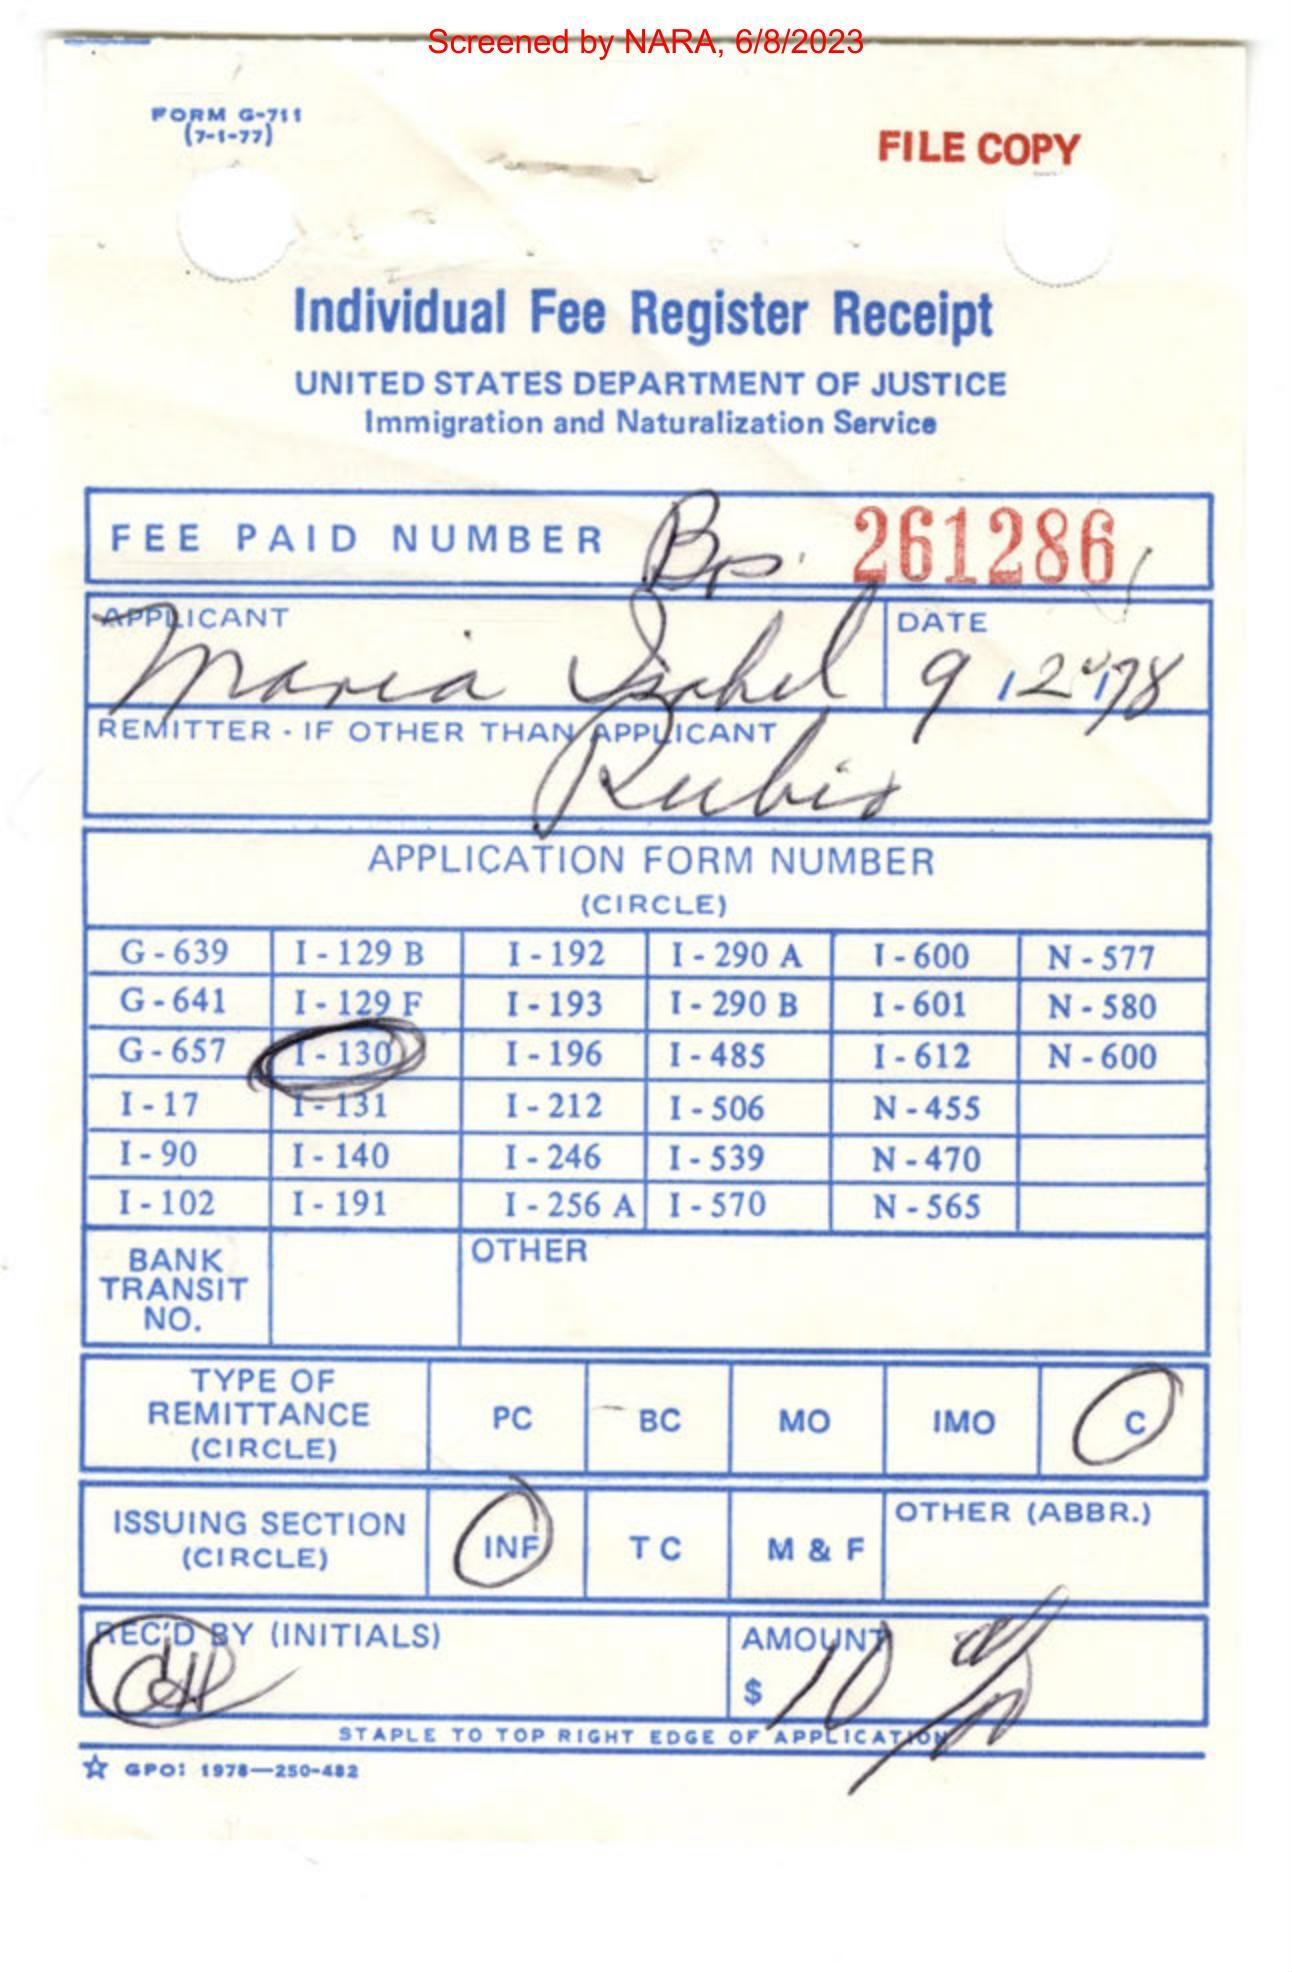 Screened by NARA, 6/8/2023
FORM G-711
(7-1-77)
FILE COPY
Individual Fee Register Receipt
UNITED STATES DEPARTMENT OF JUSTICE
Immigration and Naturalization Service
FEE PAID NUMBER 261286
APPLICANT DATE
Maria Isabel 9
REMITTER - IF OTHER THAN APPLICANT
Rubio
APPLICATION FORM NUMBER
(CIRCLE)
G - 639 I - 129 B I - 192 I - 290 A I - 600 N - 577
G - 641 I - 129 F I - 193 I - 290 B I - 601 N - 580
G - 657 I - 130 I - 196 I - 485 I - 612 N - 600
I - 17 I - 131 I - 212 I - 506 N - 455
I - 90 I - 140 I - 246 I - 539 N - 470
I - 102 I - 191 I - 256 A I - 570 N - 565
BANK TRANSIT NO. OTHER
TYPE OF REMITTANCE (CIRCLE) PC BC MO IMO C
ISSUING SECTION (CIRCLE) INF T C M & F OTHER (ABBR.)
REC'D BY (INITIALS) AMOUNT
$ 10
STAPLE TO TOP RIGHT EDGE OF APPLICATION
☆ GPO: 1978—250-482